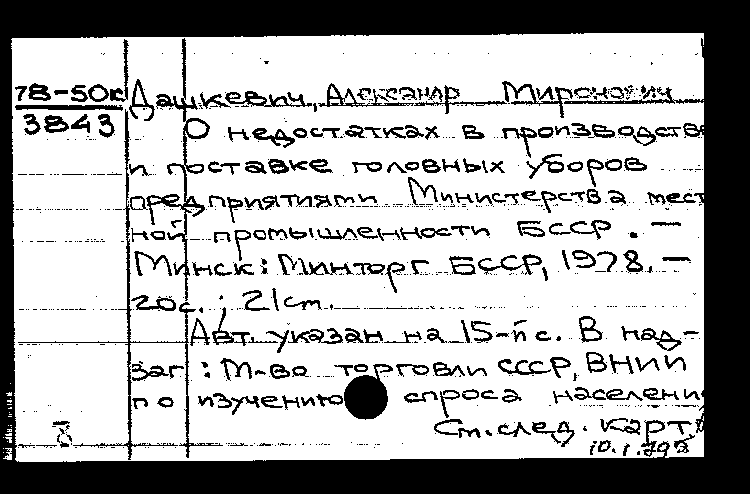 78-50к Дашкевич, Александр Миронович
3843 О недостатках в производстве
и поставке головных уборов
предприятиями Министерства мест
ной промышленности БССР. —
Минск: Минторг БССР, 1978. —
20с.; 21см.
Авт. указан на 15-й с. В над-
заг: М-во торговли СССР, ВНИИ
по изучению спроса населени
См. след. карт.
10.1.79